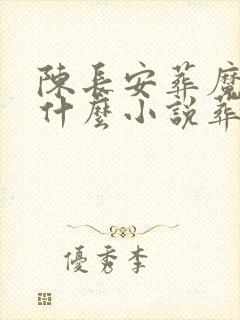 陳長安葬魔
什麼小說葬
優秀李